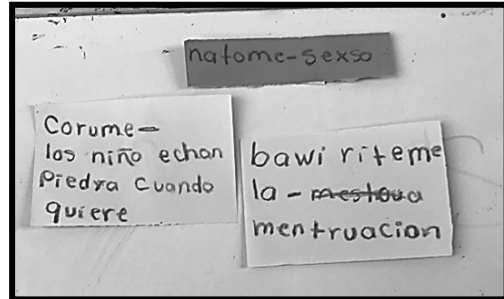 natome-sexso
Corume-
los niño echan
Piedra cuando
quiere
bawi riteme
la - mestoua
mentruacion